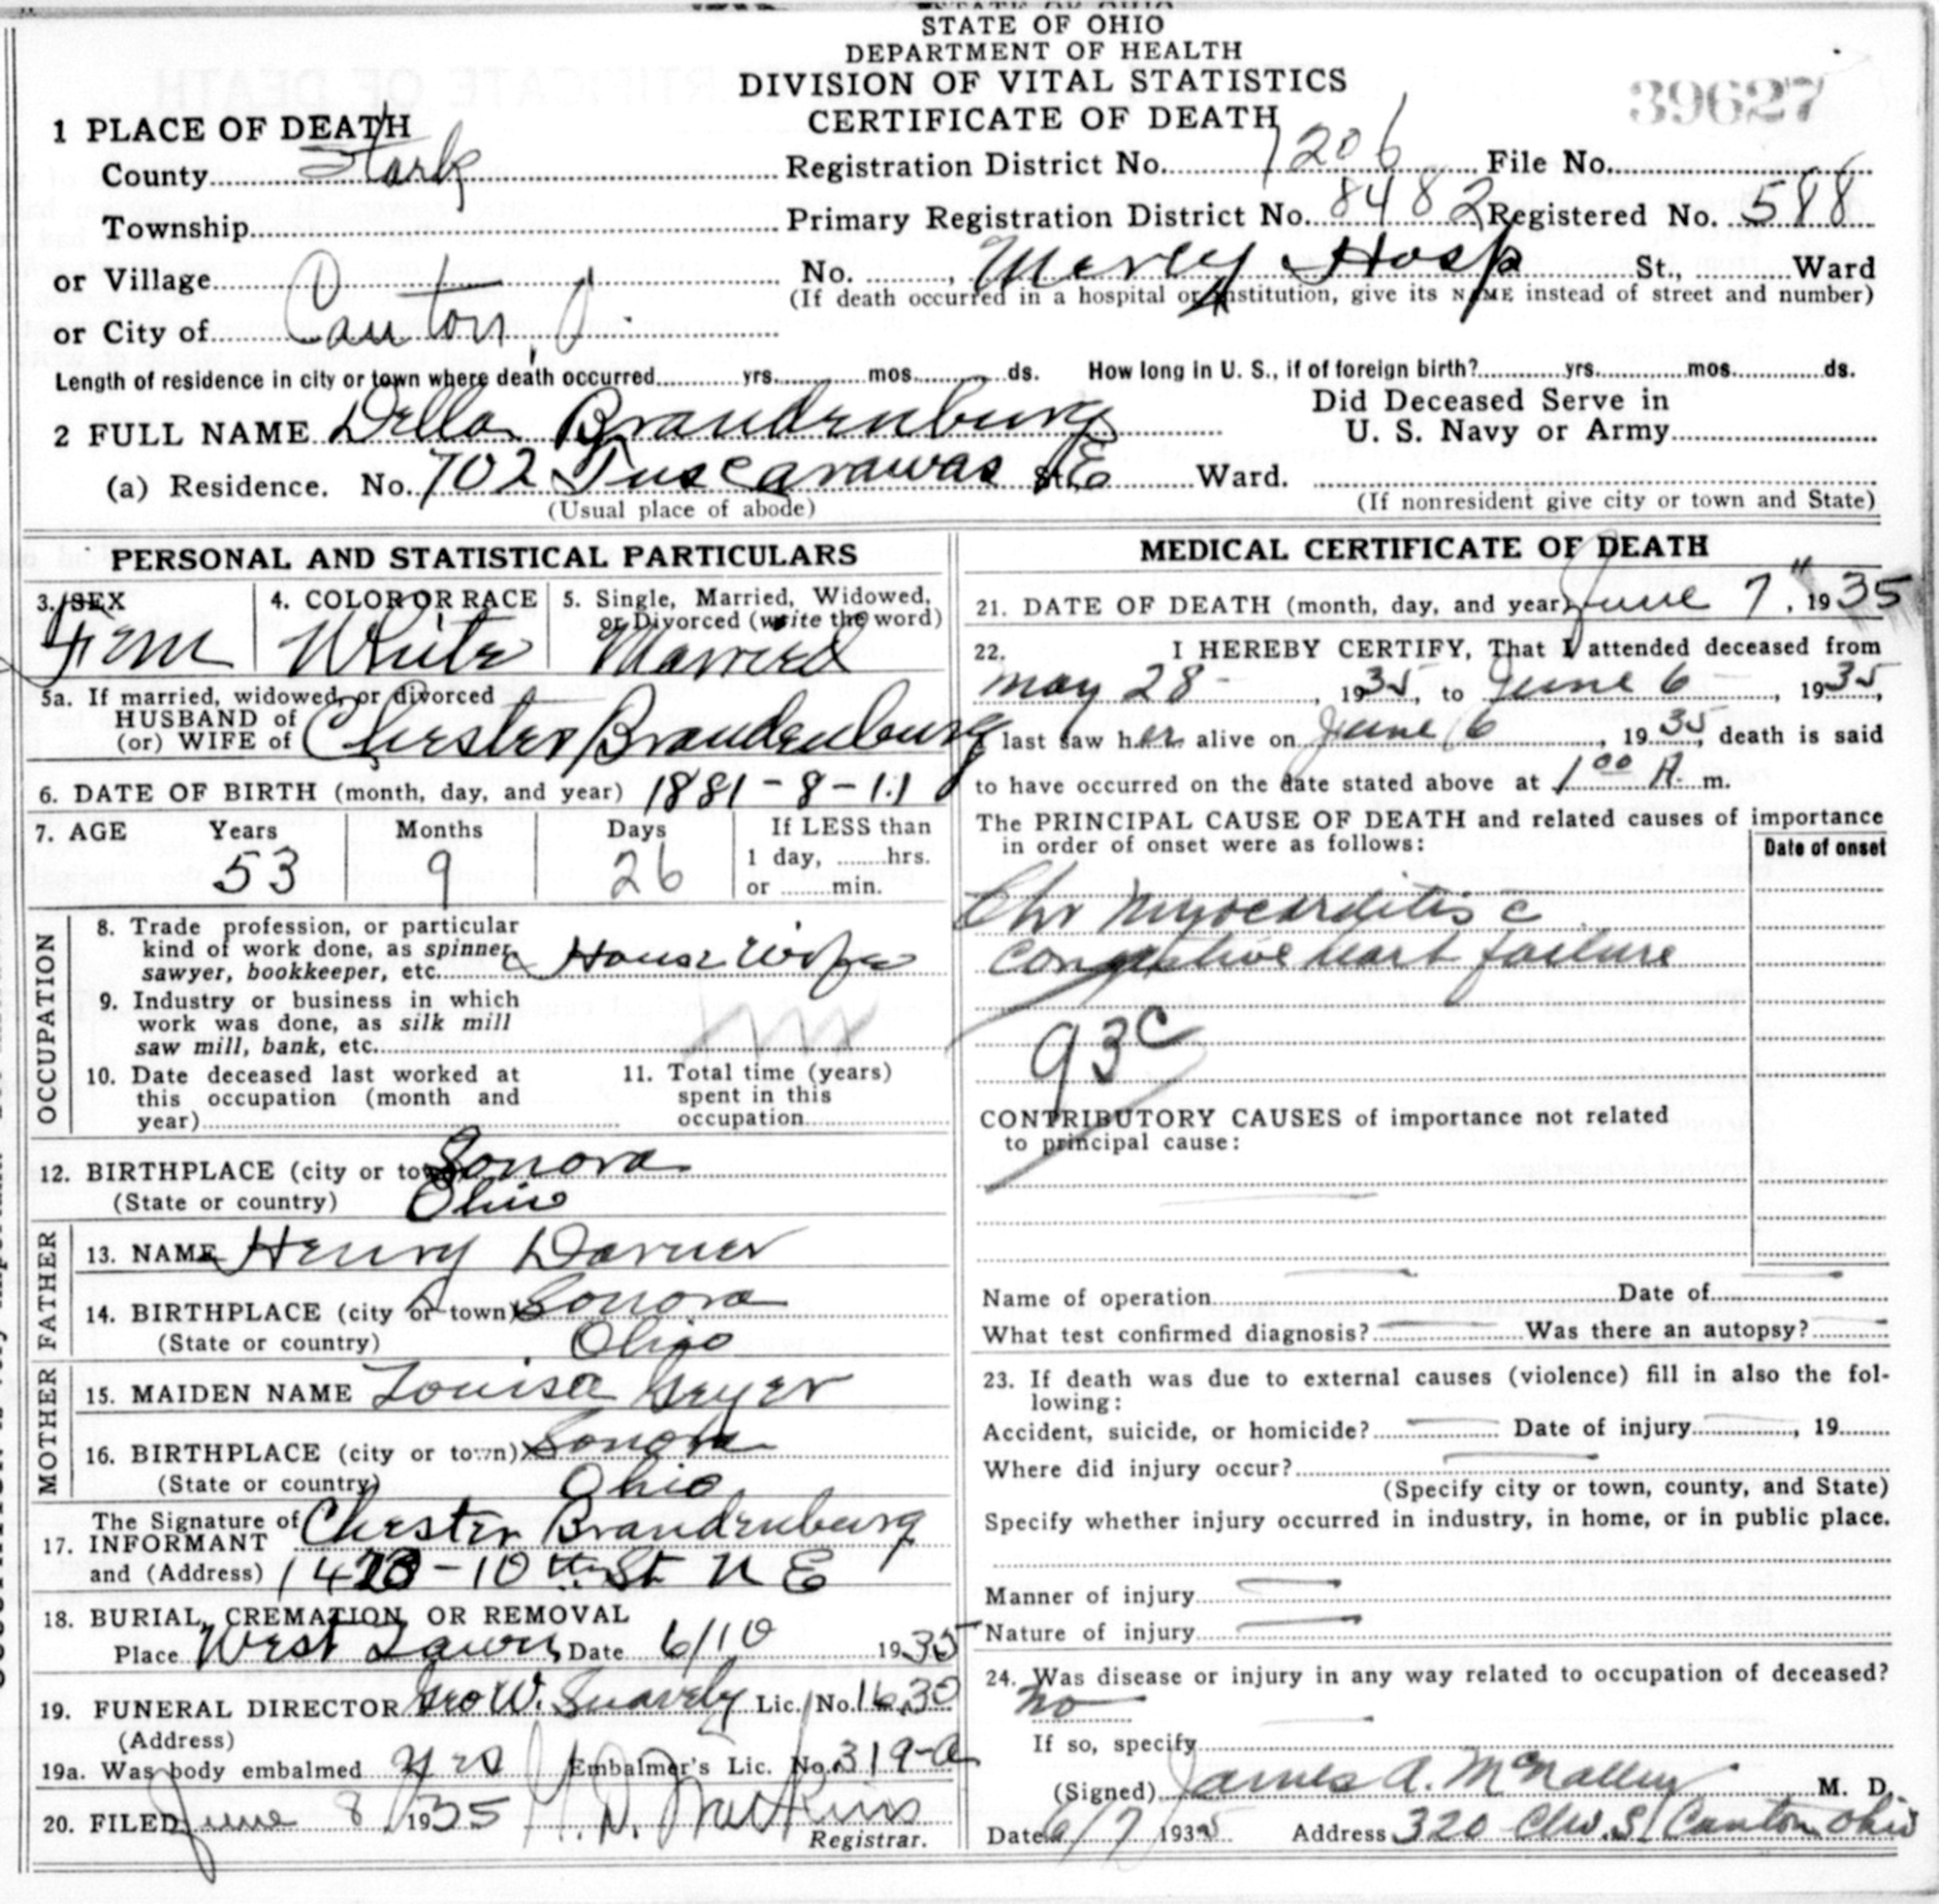 STATE OF OHIO
DEPARTMENT OF HEALTH
DIVISION OF VITAL STATISTICS
CERTIFICATE OF DEATH
39627
1 PLACE OF DEATH
County Stark Registration District No. 1206 File No.
Township Primary Registration District No. 8482 Registered No. 588
or Village No. , Mercy Hosp St., Ward
(If death occurred in a hospital or institution, give its NAME instead of street and number)
or City of Canton, O.
Length of residence in city or town where death occurred yrs. mos. ds. How long in U. S., if of foreign birth? yrs. mos. ds.
Did Deceased Serve in
U. S. Navy or Army
2 FULL NAME Della Brandenburg
(a) Residence. No. 702 Tuscarawas St. E Ward.
(Usual place of abode) (If nonresident give city or town and State)
PERSONAL AND STATISTICAL PARTICULARS
3. SEX 4. COLOR OR RACE 5. Single, Married, Widowed,
or Divorced (write the word)
Fem White Married
5a. If married, widowed, or divorced
HUSBAND of
(or) WIFE of Chester Brandenburg
6. DATE OF BIRTH (month, day, and year) 1881-8-11
7. AGE Years Months Days If LESS than
53 9 26 1 day, hrs.
or min.
OCCUPATION
8. Trade profession, or particular
kind of work done, as spinner,
sawyer, bookkeeper, etc. House Wife
9. Industry or business in which
work was done, as silk mill
saw mill, bank, etc.
10. Date deceased last worked at
this occupation (month and
year)
11. Total time (years)
spent in this
occupation
12. BIRTHPLACE (city or town) Sonora
(State or country) Ohio
FATHER
13. NAME Henry Darner
14. BIRTHPLACE (city or town) Sonora
(State or country) Ohio
MOTHER
15. MAIDEN NAME Louisa Geyer
16. BIRTHPLACE (city or town) Sonora
(State or country) Ohio
The Signature of
17. INFORMANT Chester Brandenburg
and (Address) 1423-10th St N E
18. BURIAL, CREMATION, OR REMOVAL
Place West Lawn Date 6/10 1935
19. FUNERAL DIRECTOR Geo W. Snavely Lic. No. 1630
(Address)
19a. Was body embalmed yes Embalmer's Lic. No. 319-a
20. FILED June 8 1935
Registrar.
MEDICAL CERTIFICATE OF DEATH
21. DATE OF DEATH (month, day, and year) June 7", 1935
22. I HEREBY CERTIFY, That I attended deceased from
May 28-, 1935, to June 6-, 1935,
I last saw her alive on June 6, 1935, death is said
to have occurred on the date stated above at 1 00 A. m.
The PRINCIPAL CAUSE OF DEATH and related causes of importance
in order of onset were as follows: Date of onset
Chr Myocarditis c
congestive heart failure
93c
CONTRIBUTORY CAUSES of importance not related
to principal cause:
Name of operation Date of
What test confirmed diagnosis? Was there an autopsy?
23. If death was due to external causes (violence) fill in also the fol-
lowing:
Accident, suicide, or homicide? Date of injury , 19
Where did injury occur?
(Specify city or town, county, and State)
Specify whether injury occurred in industry, in home, or in public place.
Manner of injury
Nature of injury
24. Was disease or injury in any way related to occupation of deceased?
no
If so, specify
(Signed) James A. McNalley M. D.
Date 6/7 1935 Address 320 Canton Ohio